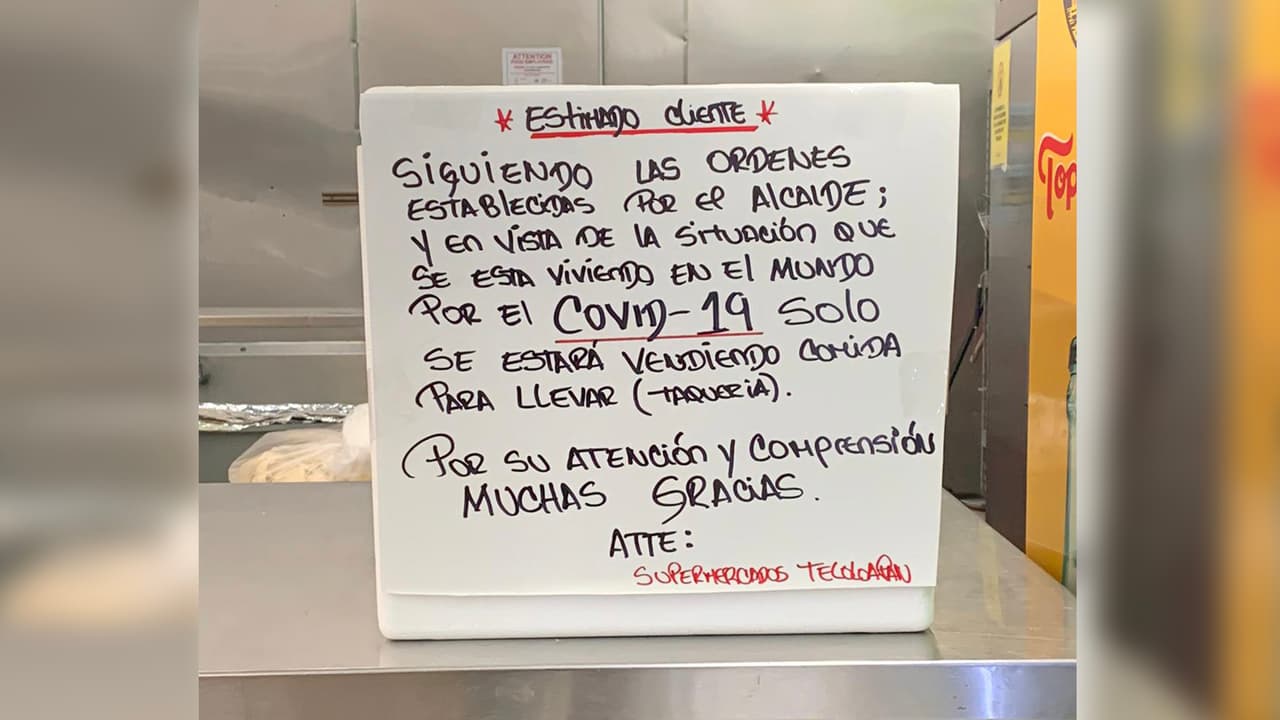 ATTENTION
* ESTIMADO CLIENTE *
SIGUIENDO LAS ORDENES
ESTABLECIDAS POR EL ALCALDE;
Y EN VISTA DE LA SITUACIÓN QUE
SE ESTA VIVIENDO EN EL MUNDO
POR EL COVID-19 SOLO
SE ESTARÁ VENDIENDO COMIDA
PARA LLEVAR (TAQUERIA).
POR SU ATENCIÓN Y COMPRENSIÓN
MUCHAS GRACIAS.
ATTE:
SUPERMERCADOS TELOLOAPAN
Top